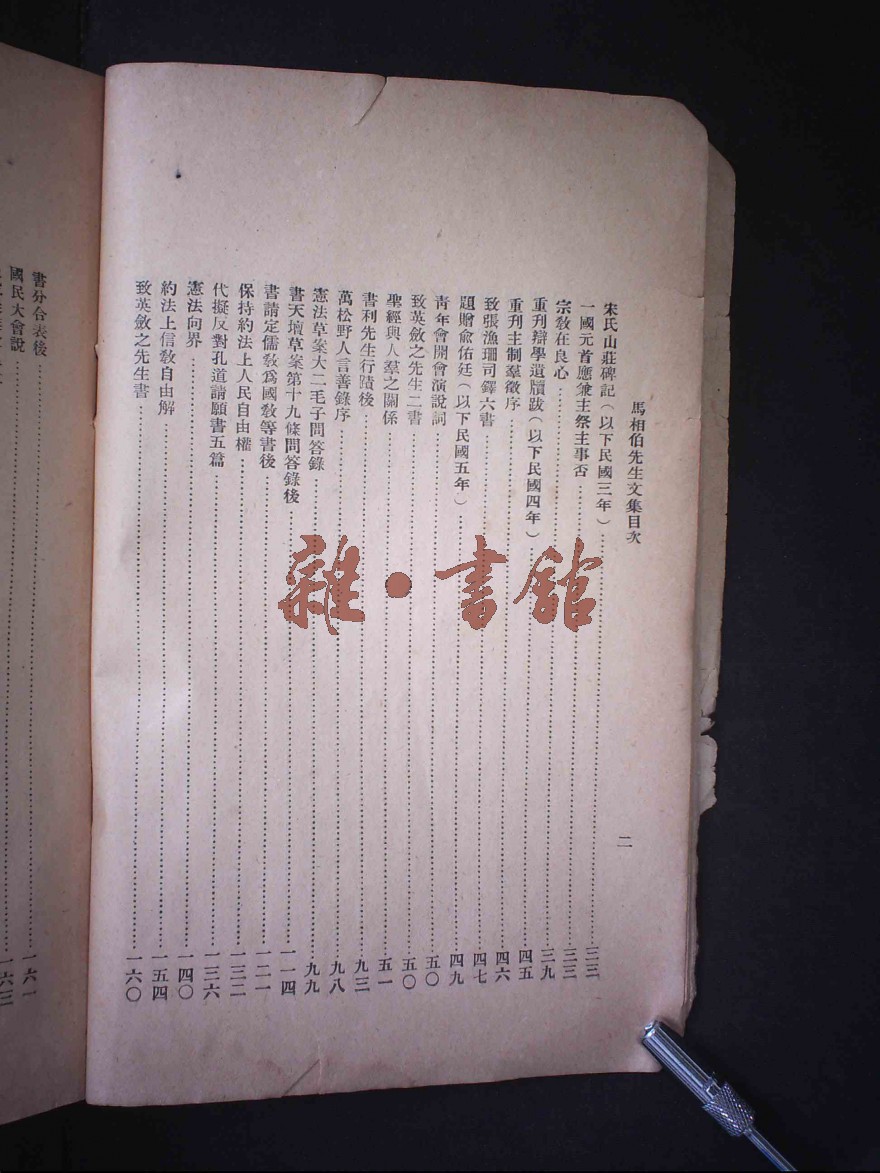 馬相伯先生文集目次
二
宋氏山莊碑記（以下民國三年）……三三
一國元首應兼主祭主事否……三三
宗教在良心……三九
重刊辯學遺牘跋（以下民國四年）……四五
重刊主制羣徵序……四六
致張漁珊司鐸六書……四七
題贈俞佑廷（以下民國五年）……四九
青年會開會演說詞……五〇
致英斂之先生二書……五〇
聖經與人羣之關係……五一
書利先生行蹟後……九三
萬松野人言善錄序……九八
憲法草案大二毛子問答錄……九九
書天壇草案第十九條問答錄後……一一四
書請定儒教爲國教等書後……一二一
保持約法上人民自由權……一三二
代擬反對孔道請願書五篇……一三六
憲法向界……一四〇
約法上信教自由解……一五四
致英斂之先生書……一六〇
書分合表後……一六一
國民大會說……一六三
雜·書館